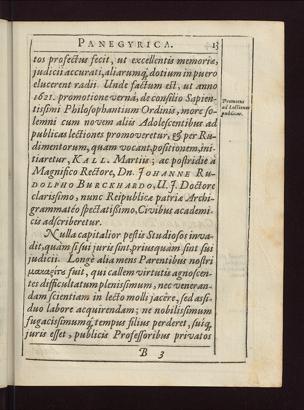 PANEGYRICA. 13
tos profectus fecit, ut excellentis memoriæ,
judicii accurati, aliarumq́; dotium in puero
elucerent radii. Unde factum est, ut anno
1621. promotione vernâ, de consilio Sapien-
tissimi Philosophantium Ordinis, more so-
lemni cum novem aliis Adolescentibus ad
publicas lectiones promoveretur, & per Ru-
dimentorum, quam vocant, positionem, ini-
tiaretur, KALL. Martiis; ac postridie à
Magnifico Rectore, Dn. JOHANNE RU-
DOLPHO BURCKHARDO, U. J. Doctore
clarissimo, nunc Reipublicæ patriæ Archi-
grammatéo spectatissimo, Civibus academi-
cis adscriberetur.
Promotus
ad Lectiones
publicas.
Nulla capitalior pestis Studiosos inva-
dit, quàm si sui juris sint, priusquàm sint sui
judicii. Longè alia mens Parentibus nostri
μακαρίτε fuit, qui callem virtutis agnoscen-
tes difficultatum plenissimum, nec veneran-
dam scientiam in lecto molli jacere, sed assi-
duo labore acquirendam; ne nobilissimum
fugacissimumq́; tempus filius perderet, suiq́;
juris esset, publicis Professoribus privatos
B 3